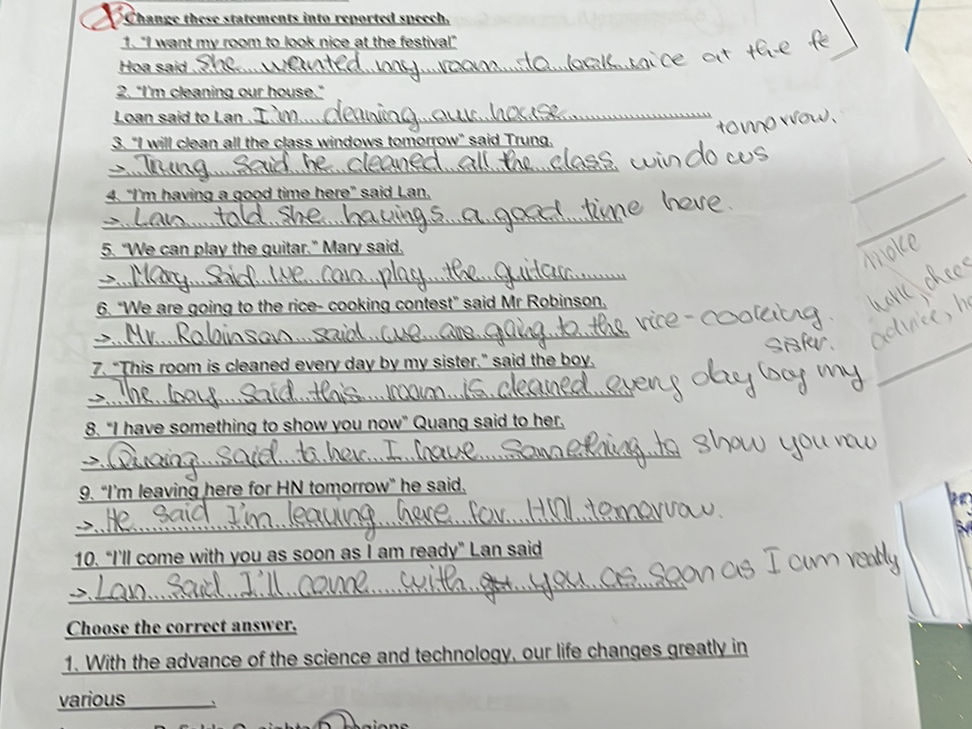 Change these statements into reported speech.
1. "I want my room to look nice at the festival"
Hoa said She wanted my room to look nice at the fe
2. "I'm cleaning our house."
Loan said to Lan I'm cleaning our house
3. "I will clean all the class windows tomorrow" said Trung.
tomorrow.
-> Trung said he cleaned all the class windows
4. "I'm having a good time here" said Lan.
-> Lan told she havings a good time here.
5. "We can play the guitar." Mary said.
-> Mary said we can play the guitar
6. "We are going to the rice- cooking contest" said Mr Robinson.
-> Mr. Robinson said we are going to the rice-cooking.
7. "This room is cleaned every day by my sister." said the boy.
sister.
-> The boy said this room is cleaned every day by my
8. "I have something to show you now" Quang said to her.
-> Quang said to her I have something to show you now
9. "I'm leaving here for HN tomorrow" he said.
-> He said I'm leaving here for HN tomorrow.
10. "I'll come with you as soon as I am ready" Lan said
-> Lan said I'll come with you as soon as I am ready
Choose the correct answer.
1. With the advance of the science and technology, our life changes greatly in
various ________.
make
have
advice,